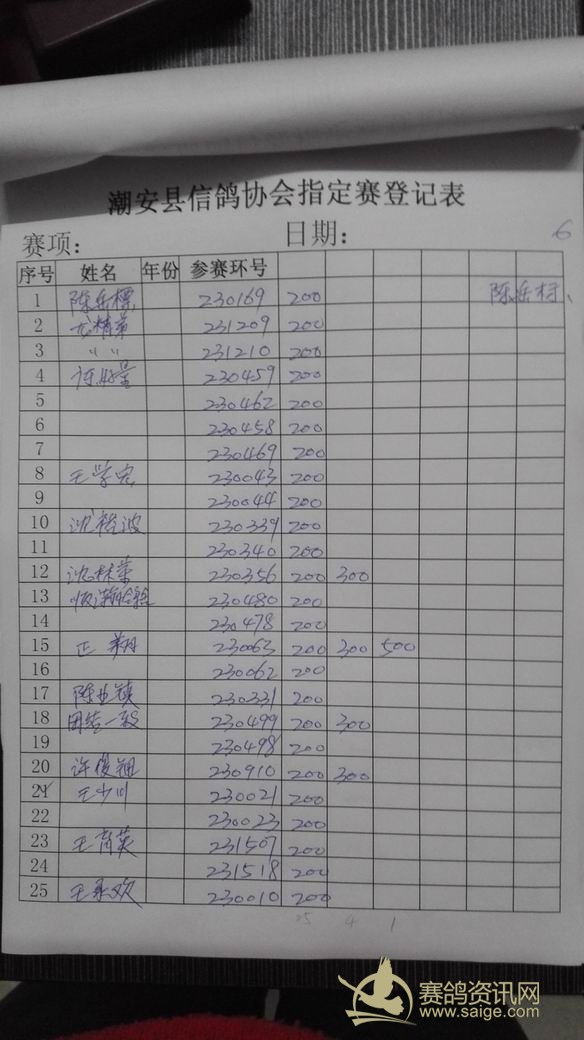 潮安县信鸽协会指定赛登记表
赛项： 日期： 6
序号 姓名 年份 参赛环号
1 陈岳标 230169 200 陈岳标
2 龙精弟 231209 200
3 〃 〃 231210 200
4 230459 200
5 230462 200
6 230458 200
7 230469 200
8 王学宏 230043 200
9 230044 200
10 沈裕波 230339 200
11 230340 200
12 沈林荣 230356 200 300
13 230480 200
14 230478 200
15 正翔 230063 200 300 500
16 230062 200
17 陈业镇 230331 200
18 团结一致 230499 200 300
19 230498 200
20 许俊翘 230910 200 300
21 王少川 230021 200
22 230023 200
23 王育英 231507 200
24 231518 200
25 王永欢 230010 200
25 4 1
赛鸽资讯网
www.saige.com